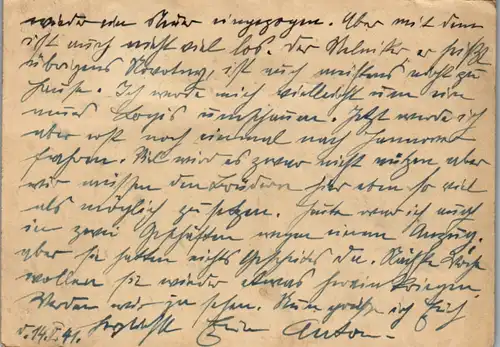 wieder ein Neuer eingezogen. Aber mit dem
ist auch nicht viel los. Der Melniker er heißt
übrigens Novotny, ist auch meistens nicht zu
Hause. Ich werde mich vielleicht um ein
neues Logis umschauen. Jetzt werde ich
aber erst noch einmal nach Hannover
fahren. Viel wird es zwar nicht nützen aber
wir müssen den Brüdern hier eben so viel
als möglich zusetzen. Heute war ich auch
in zwei Geschäften wegen einem Anzug,
aber sie hatten nichts Gescheites da. Nächste Woche
wollen sie wieder etwas herein kriegen.
Werden wir ja sehen. Nun grüße ich Euch
herzlichst Euer Anton -
d. 14.I.41.